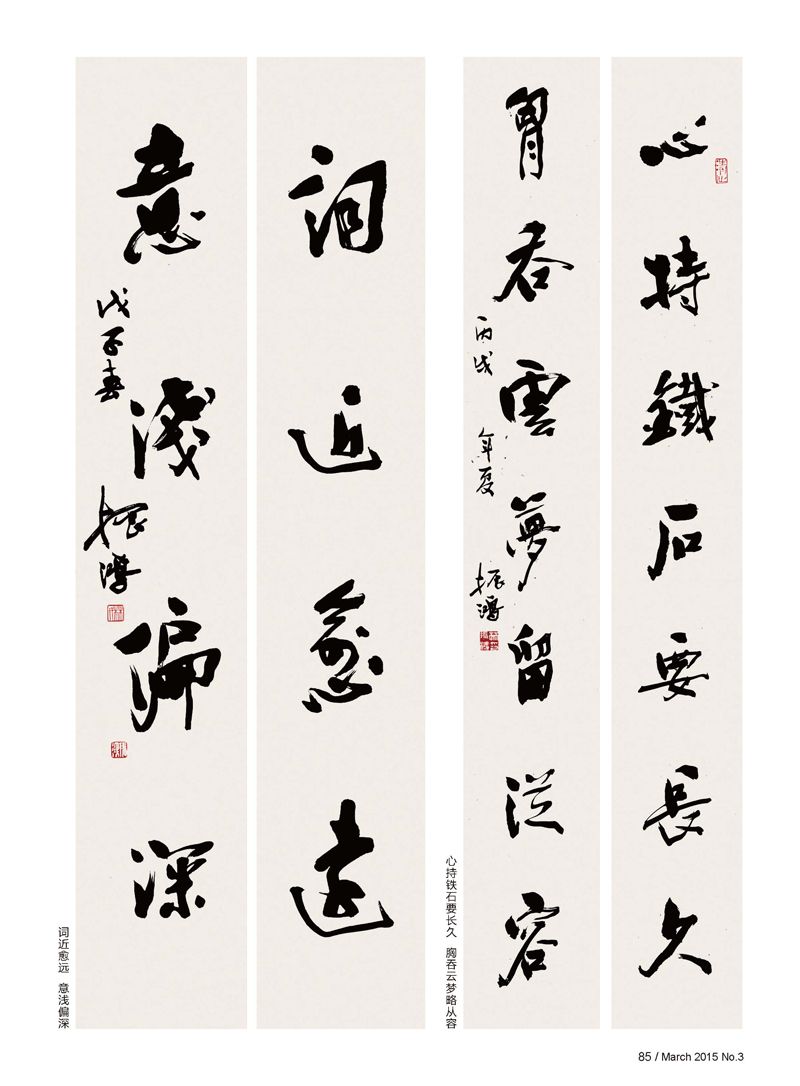 心持鐵石要長久
胷吞雲夢留從容
丙戌年夏 振鴻
心持铁石要长久 胸吞云梦略从容
詞近愈遠
意淺偏深
戊子春 振鴻
词近愈远 意浅偏深
85 / March 2015 No.3